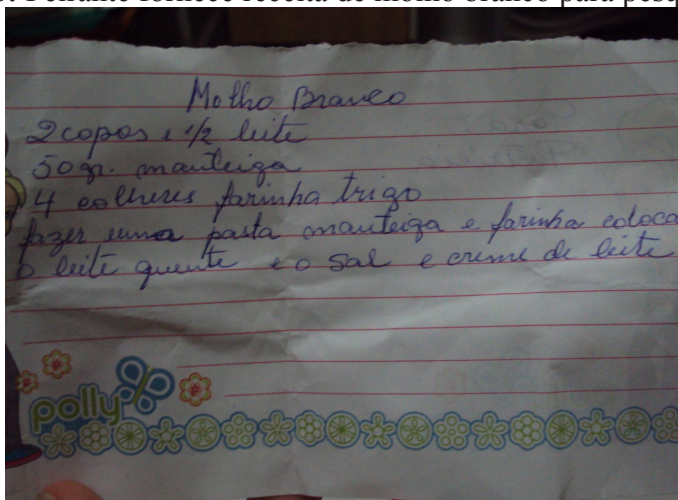 fornece receita de molho branco para
Molho Branco
2 copos e 1/2 leite
50 gr. manteiga
4 colheres farinha trigo
fazer uma pasta manteiga e farinha coloca
o leite quente e o sal e creme de leite
polly